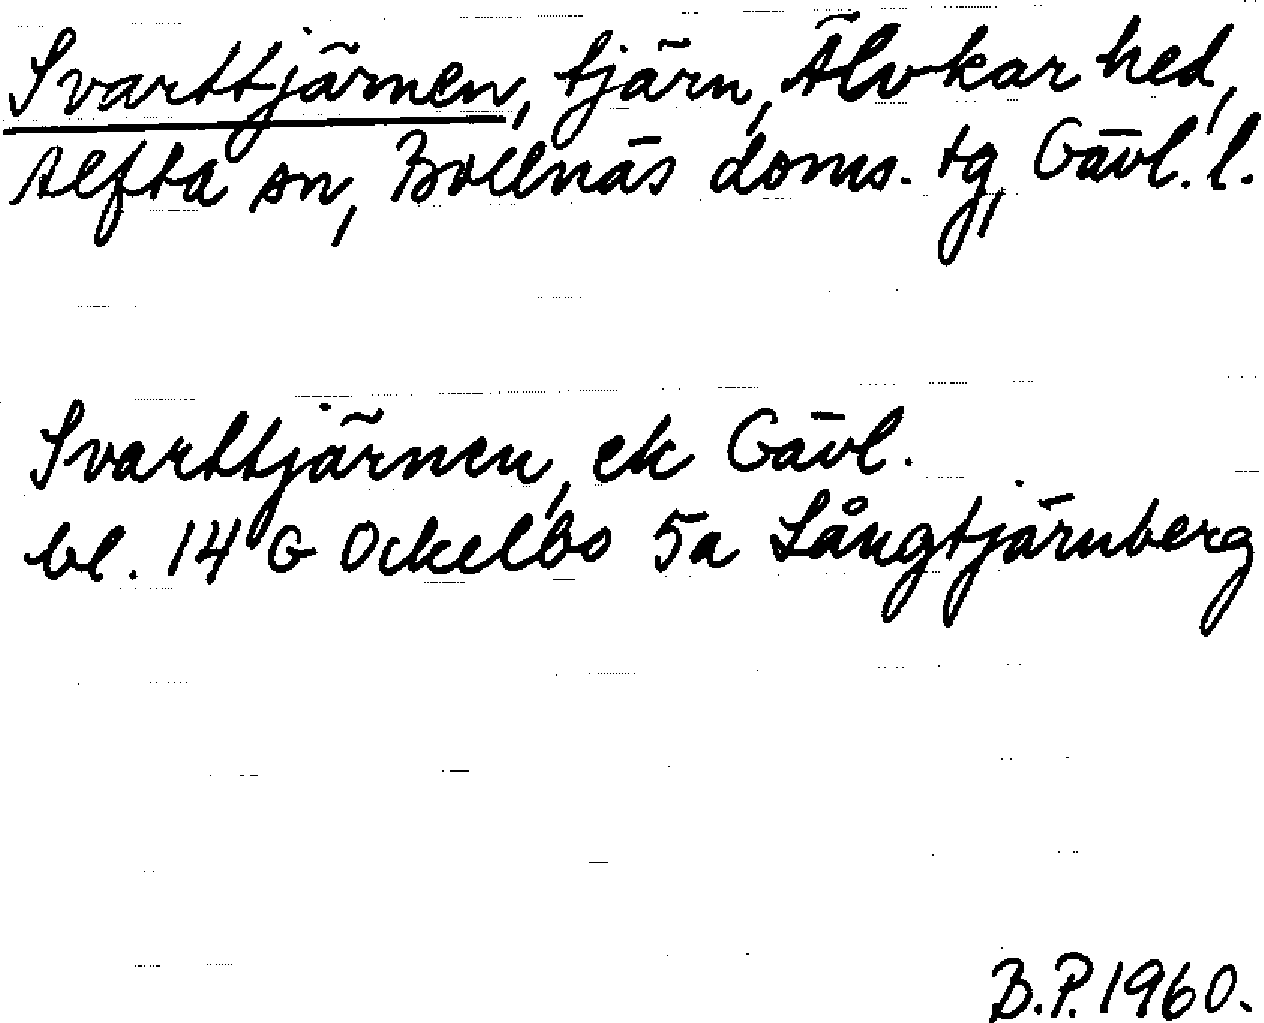 Svarttjärnen, tjärn, Älvkarhed,
Alfta sn, Bollnäs doms. tg, Gävl. l.
Svarttjärnen, ek Gävl.
bl. 14 G Ockelbo 5a Långtjärnberg
B.P. 1960.